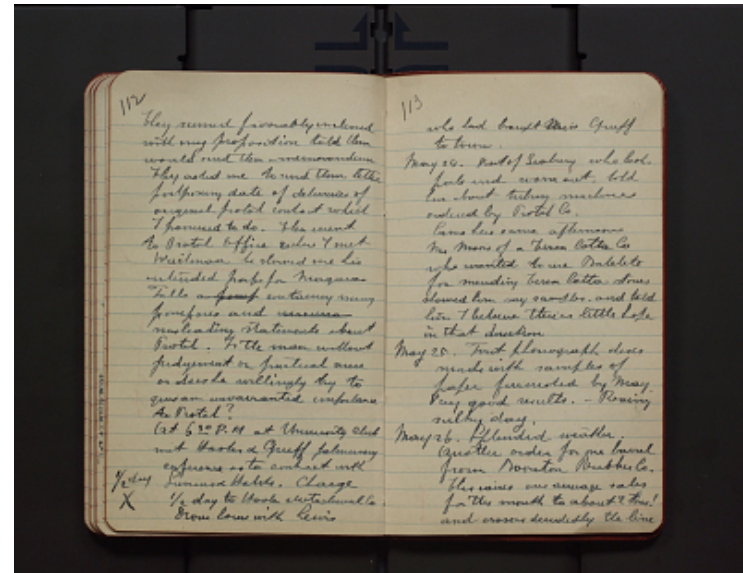 112
They seemed favorably inclined
with my proposition told them
would send them memorandum
They asked me to send them letter
postponing date of deliveries of
original Protal contract which
I promised to do. Then went
to Protal Office where I met
Weidman he showed me his
intended for Niagara
Falls containing many
and
misleading statements about
Protal. Is the man without
judgement or practical sense
or does he willingly try to
give an unwarranted importance
to Protal?
At 6 30 P.M at University Club
met Hooker & Gruff preliminary
conference as to contract with
Charge
1/2 day
X
1/2 day to Hooker Electrochemical Co.
Drove home with Lewis
113
who had brought Gruff
to town.
May 24. of Seabury who looks
pale and worn out. told
me about turbing machines
ordered by Protal Co.
Came here same afternoon
Mr. of a Terra Cotta Co
who wanted to use Bakelite
for mending Terra Cotta stones
showed him my samples and told
him I believe there is little hope
in that direction
May 25. First phonograph discs
made with samples of
paper furnished by May.
Very good results. - Roaring
day.
May 26. Splendid weather.
Another order for one barrel
from Boonton Rubber Co.
This raises our average sales
for the month to about
and crosses decidedly the line